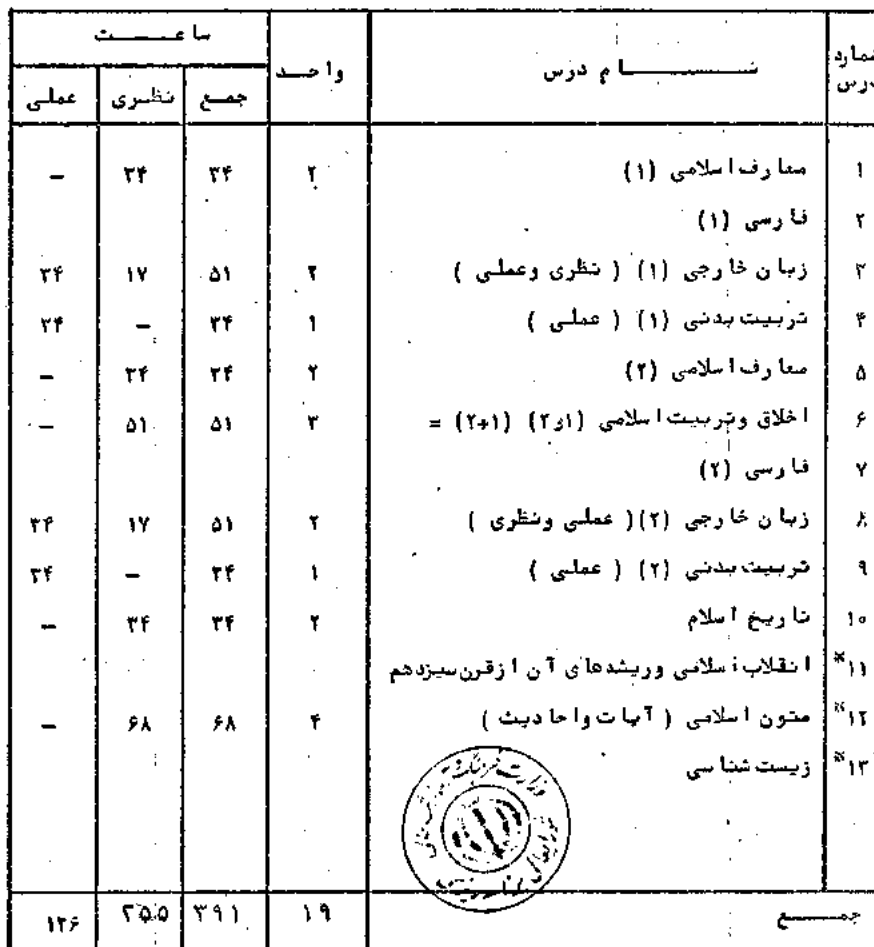 شماره درس نام درس واحد ساعت
جمع نظری عملی
۱ معارف اسلامی (۱) ۲ ۳۴ ۳۴ –
۲ فارسی (۱)
۳ زبان خارجی (۱) ( نظری وعملی ) ۲ ۵۱ ۱۷ ۳۴
۴ تربیت بدنی (۱) ( عملی ) ۱ ۳۴ – ۳۴
۵ معارف اسلامی (۲) ۲ ۳۴ ۳۴ –
۶ اخلاق وتربیت اسلامی (۱و۲) (۲+۱) = ۳ ۵۱ ۵۱ –
۷ فارسی (۲)
۸ زبان خارجی (۲) ( عملی ونظری ) ۲ ۵۱ ۱۷ ۳۴
۹ تربیت بدنی (۲) ( عملی ) ۱ ۳۴ – ۳۴
۱۰ تاریخ اسلام ۲ ۳۴ ۳۴ –
۱۱* انقلاب اسلامی وریشه‌های آن ازقرن سیزدهم
۱۲* متون اسلامی ( آیات واحادیث ) ۴ ۶۸ ۶۸ –
۱۳* زیست شناسی
وزارت فرهنگ و آموزش عالی
جمع ۱۹ ۳۹۱ ۲۵۵ ۱۳۶